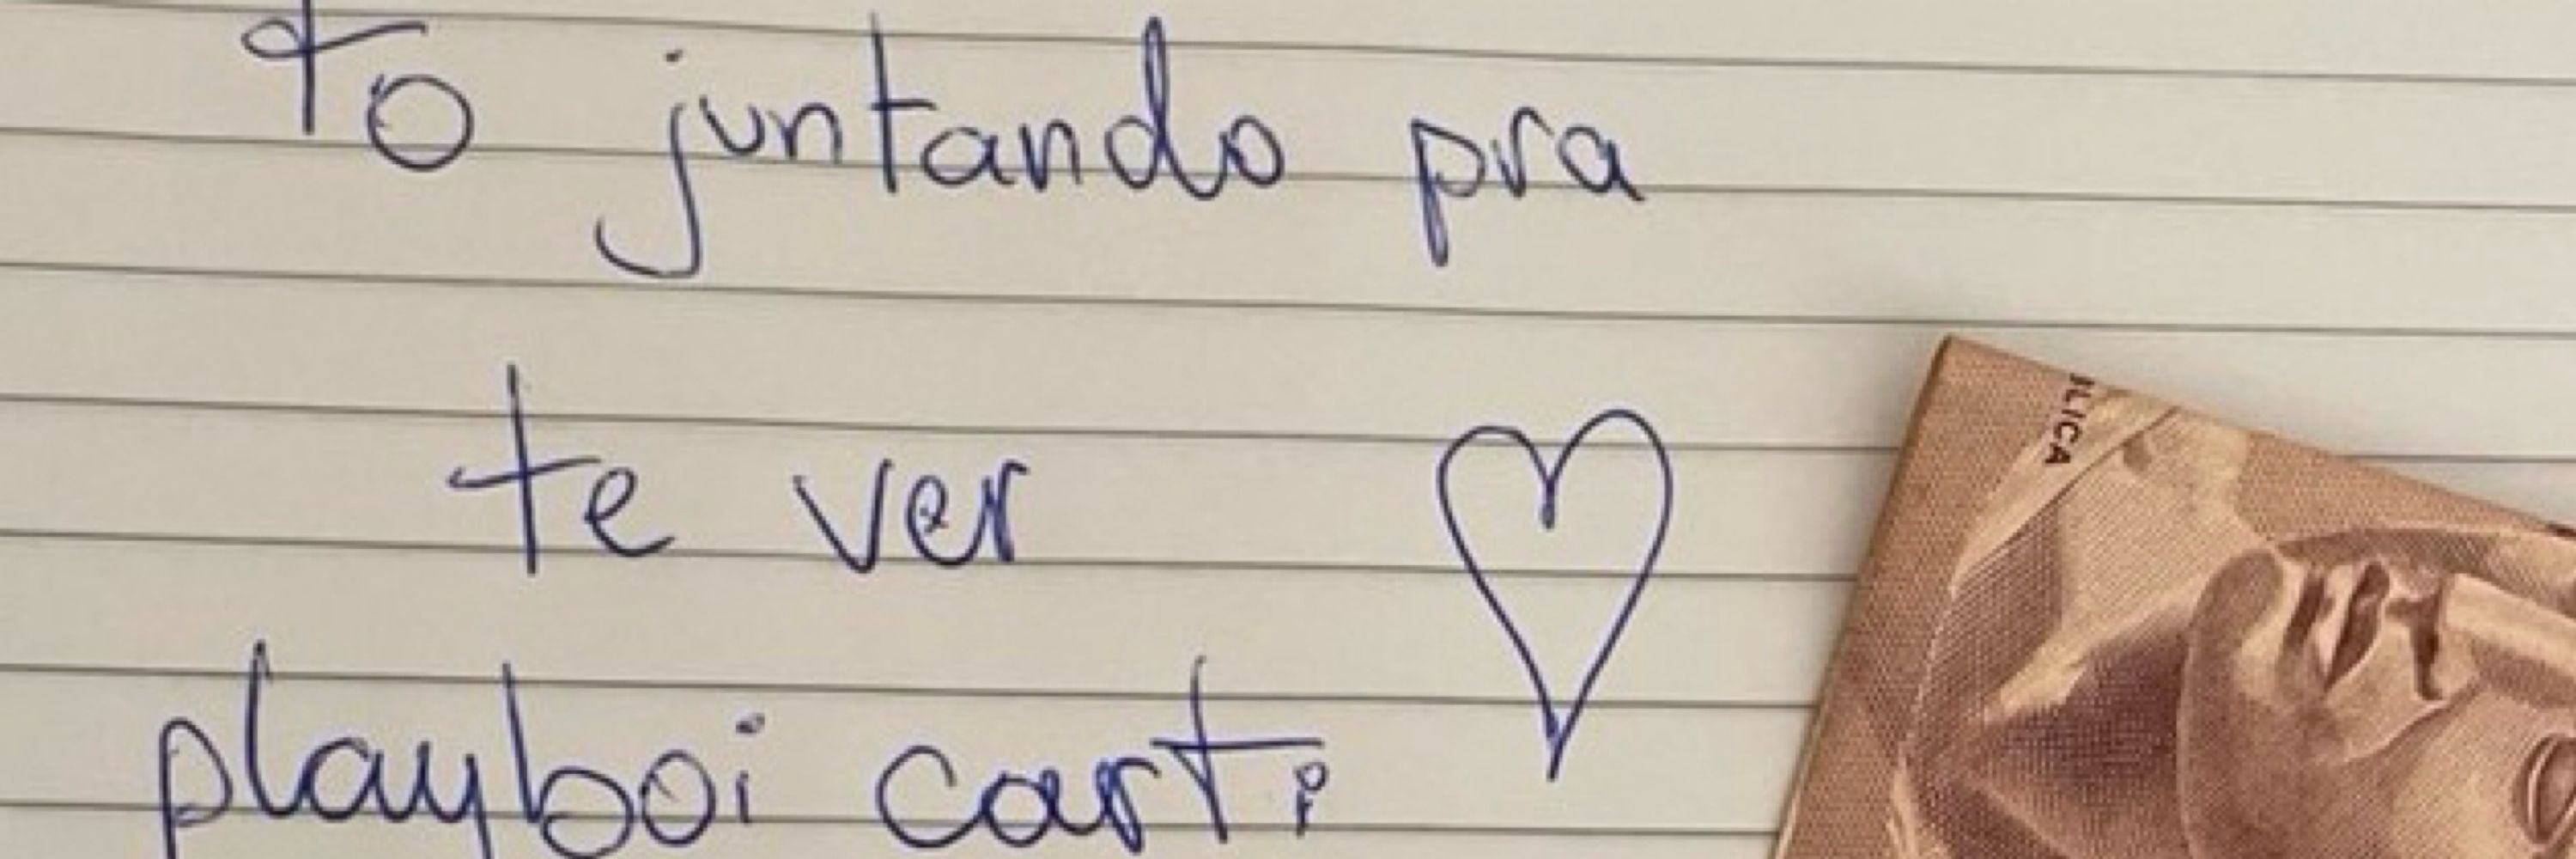 to juntando pra
te ver
playboi carti
BLICA